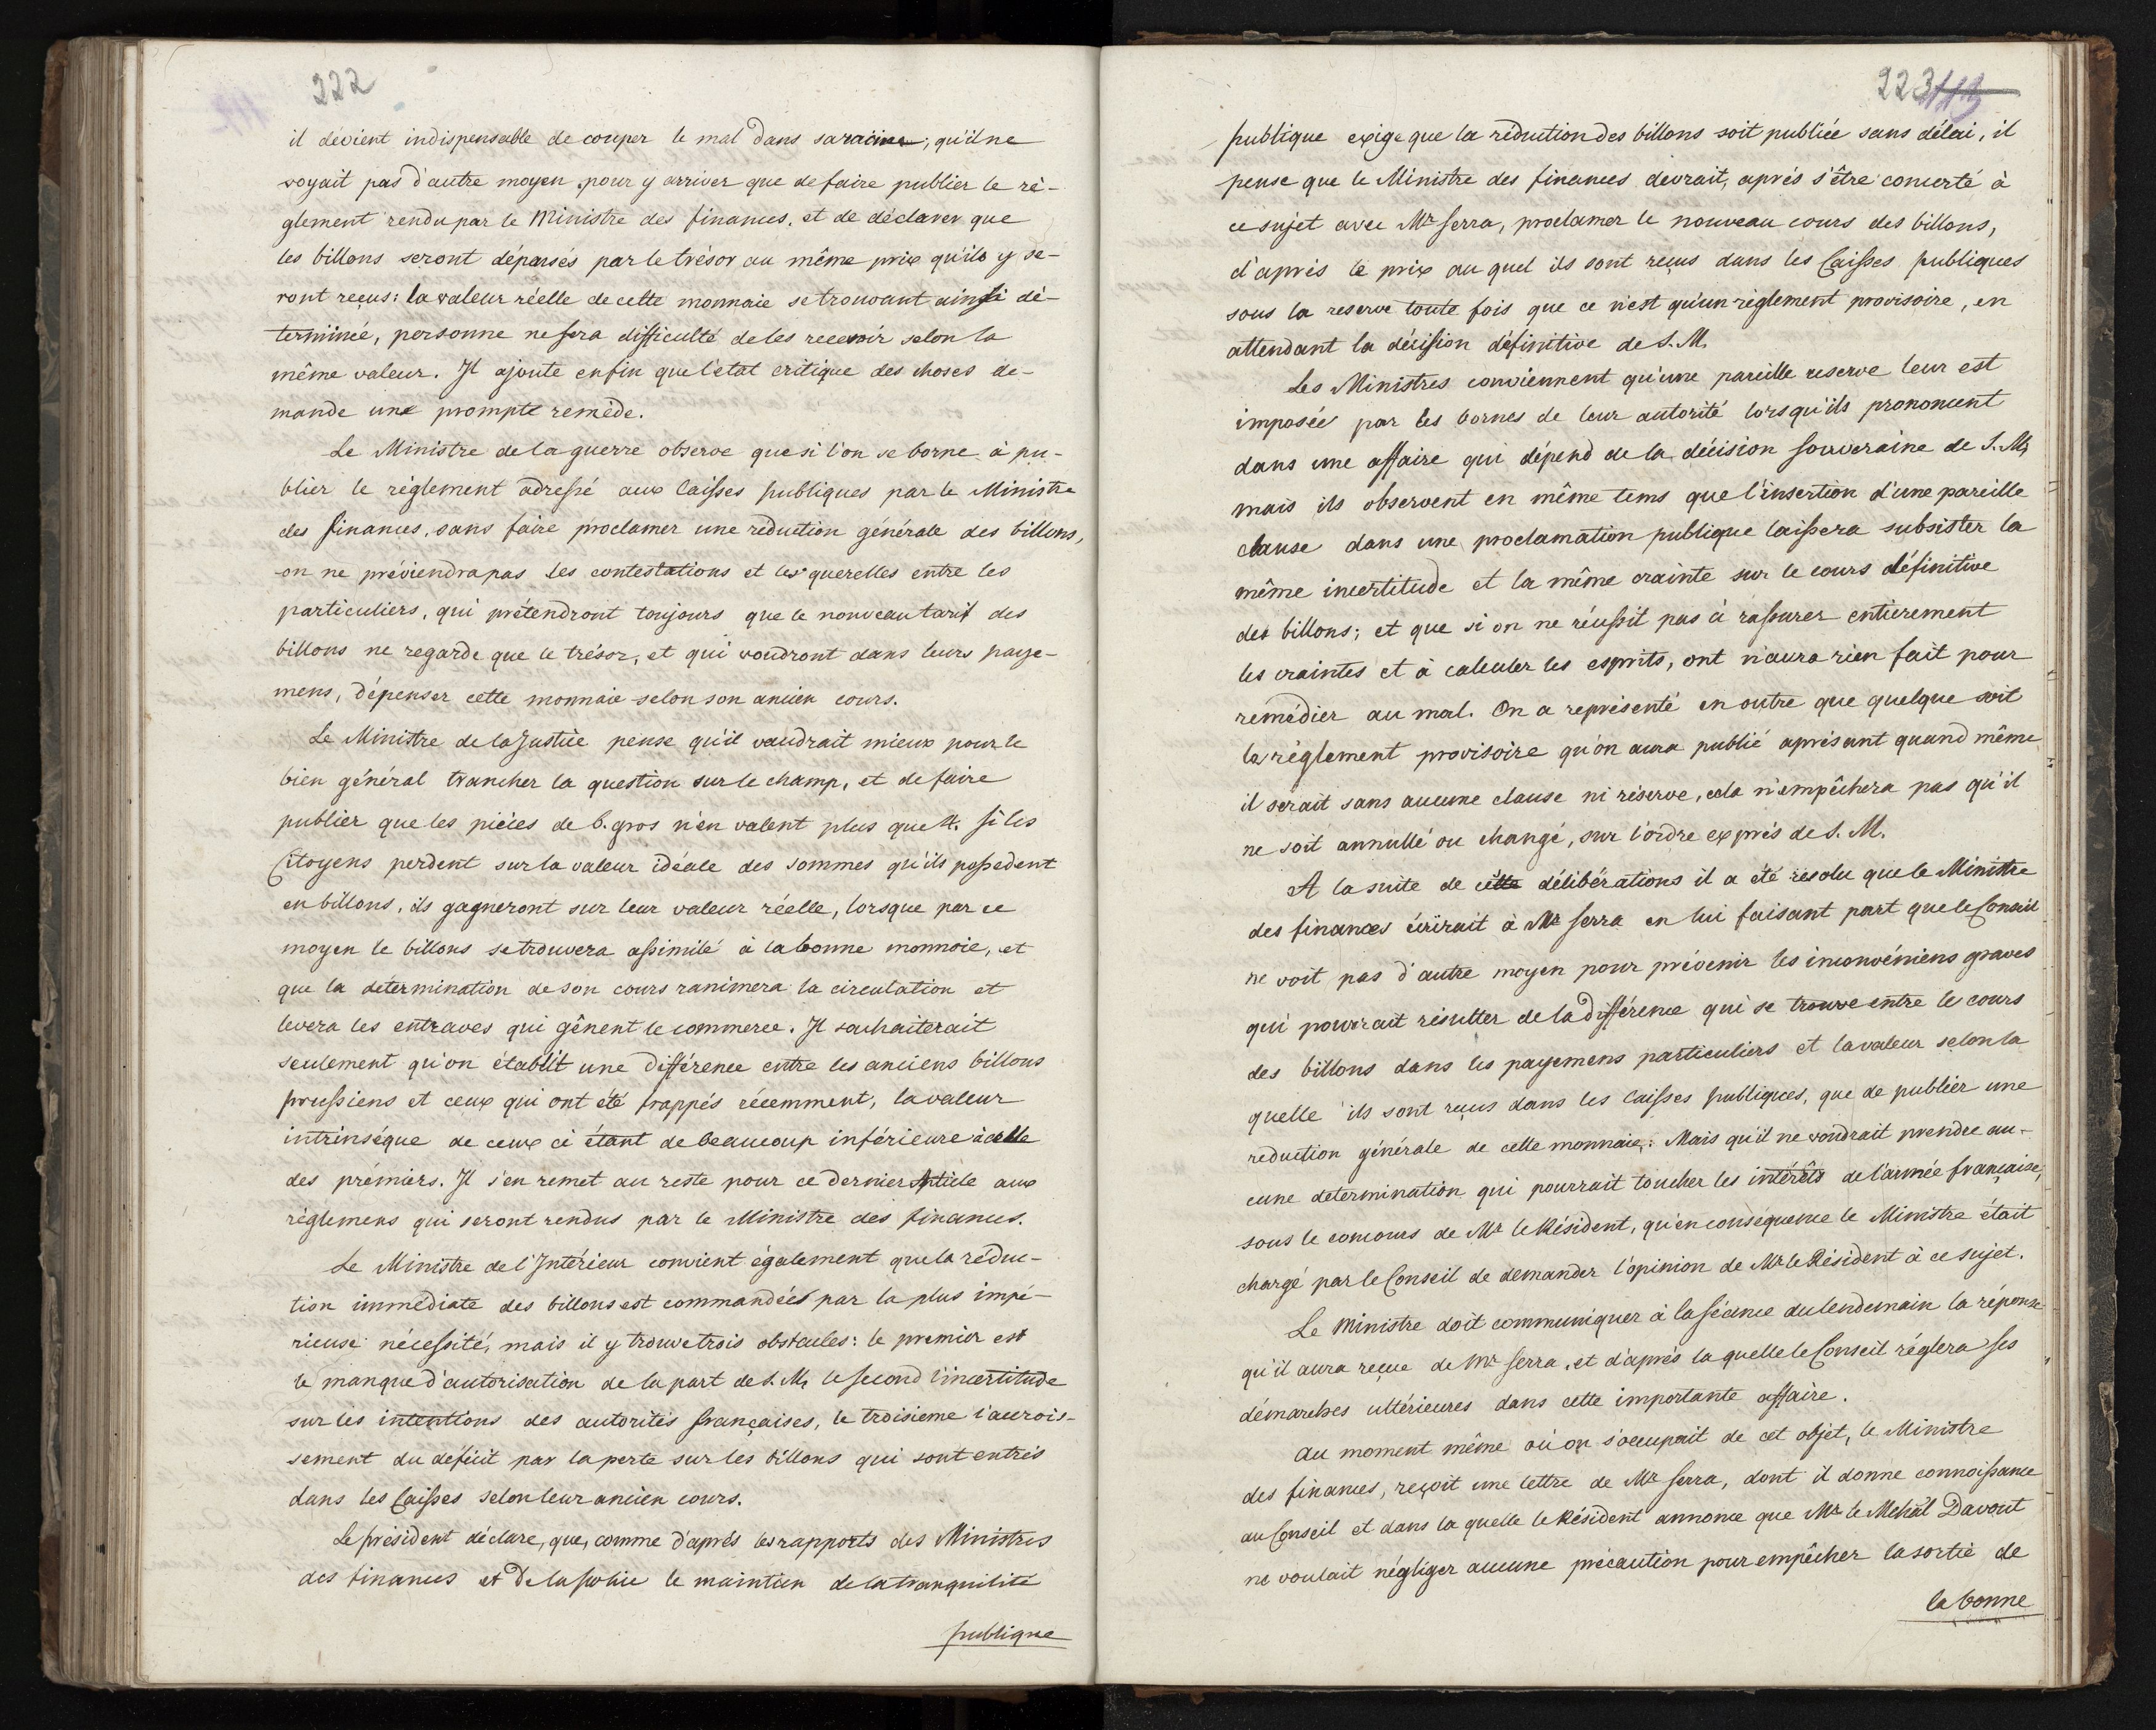 222
il dévient indispensable de couper le mal dans sa racine; qu'il ne
voyait pas d'autre moyen pour y arriver que de faire publier le ré-
glement rendu par le Ministre des finances, et de déclarer que
les billons seront dépensés par le trésor au même prix qu'ils y se-
ront reçus: la valeur réelle de cette monnaie se trouvant ainsi dé-
terminée, personne ne fera difficulté de les recevoir selon la
même valeur. Il ajoute enfin que l'état critique des choses de-
mande une prompte remède.
Le Ministre de la guerre observe que si l'on se borne à pu-
blier le réglement adressé aux Caisses publiques par le Ministre
des finances, sans faire proclamer une réduction générale des billons,
on ne préviendra pas les contestations et les querelles entre les
particuliers, qui prétendront toujours que le nouveau tarif des
billons ne regarde que le trésor, et qui voudront dans leurs paye-
mens, dépenser cette monnaie selon son ancien cours.
Le Ministre de la Justice pense qu'il vaudrait mieux pour le
bien général trancher la question sur le champ, et de faire
publier que les pièces de 6. gros n'en valent plus que 4. Si les
Citoyens perdent sur la valeur idéale des sommes qu'ils possedent
en billons, ils gagneront sur leur valeur réelle, lorsque par ce
moyen le billons se trouvera assimilé à la bonne monnoie, et
que la détermination de son cours ranimera la circulation et
levera les entraves qui gênent le commerce. Il souhaiterait
seulement qu'on établit une différence entre les anciens billons
prussiens et ceux qui ont été frappés récemment, la valeur
intrinséque de ceux ci étant de beaucoup inférieure à celle
des prémiers. Il s'en remet au reste pour ce dernier Article aux
réglemens qui seront rendus par le Ministre des finances.
Le Ministre de l'Intérieur convient également que la réduc-
tion immédiate des billons est commandées par la plus impé-
rieuse nécessité, mais il y trouve trois obstacles: le premier est
le manque d'autorisation de la part de S. M, le second l'incertitude
sur les intentions des autorités françaises, le troisieme l'accrois-
sement du déficit par la perte sur les billons qui sont entrés
dans les Caisses selon leur ancien cours.
Le président déclare, que, comme d'aprés les rapports des Ministres
des finances et de la police le maintien de la tranquilité
publique
223 113
publique exige que la réduction des billons soit publiée sans délai, il
pense que le Ministre des finances devrait, aprés s'être concerté à
ce sujet avec Mr Serra, proclamer le nouveau cours des billons,
d'aprés le prix au quel ils sont reçus dans les Caisses publiques
sous la reserve toute fois que ce n'est qu'un réglement provisoire, en
attendant la décision définitive de S. M.
Les Ministres conviennent qu'une pareille reserve leur est
imposée par les bornes de leur autorité lorsqu'ils prononcent
dans une affaire qui dépend de la décision souveraine de S. M,
mais ils observent en même tems que l'insertion d'une pareille
clause dans une proclamation publique laissera subsister la
même incertitude et la même crainte sur le cours définitive
des billons; et que si on ne réussit pas à rassurer entierement
les craintes et à calculer les esprits, ont n'aura rien fait pour
remédier au mal. On a représenté en outre que quelque soit
le réglement provisoire qu'on aura publié aprésent quand même
il serait sans aucune clause ni réserve, cela n'empêchera pas qu'il
ne soit annullé ou changé, sur l'ordre exprés de S. M.
A la suite de cette délibérations il a été résolu que le Ministre
des finances écrirait à Mr Serra en lui faisant part que le Conseil
ne voit pas d'autre moyen pour prévenir les inconvéniens graves
qui pourrait résulter de la différence qui se trouve entre le cours
des billons dans les payemens particuliers et la valeur selon la
quelle ils sont reçus dans les Caisses publiques, que de publier une
reduction générale de cette monnaie: Mais qu'il ne voudrait prendre au-
cune determination qui pourrait toucher les intérêts de l'armée française,
sous le concours de Mr le Résident, qu'en conséquence le Ministre était
chargé par le Conseil de demander l'opinion de Mr le Résident à ce sujet.
Le Ministre doit communiquer à la séance du lendemain la réponse
qu'il aura reçue de Mr Serra, et d'aprés la quelle le Conseil réglera ses
démarches ultérieures dans cette importante affaire.
Au moment même où on s'occupait de cet objet, le Ministre
des finances, reçoit une lettre de Mr Serra, dont il donne connoissance
au Conseil et dans la quelle le Résident annonce que Mr le Mchal Davout
ne voulait négliger aucune précaution pour empêcher la sortie de
la bonne